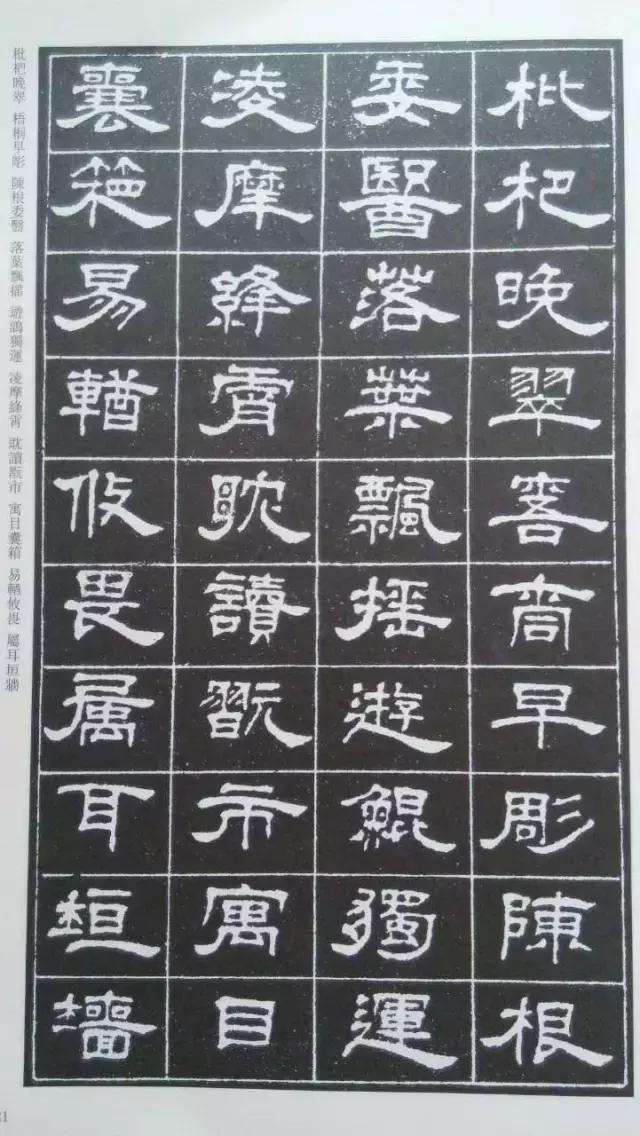 枇杷晚翠梧桐早彫陳根
委醫落葉飄搖遊鯤獨運
凌摩絳霄耽讀翫市寓目
囊箱易輶攸畏属耳垣墻
枇杷晚翠 梧桐早彫 陳根委翳 落葉飄搖 遊鵾獨運 凌摩絳霄 耽讀翫市 寓目囊箱 易輶攸畏 屬耳垣牆